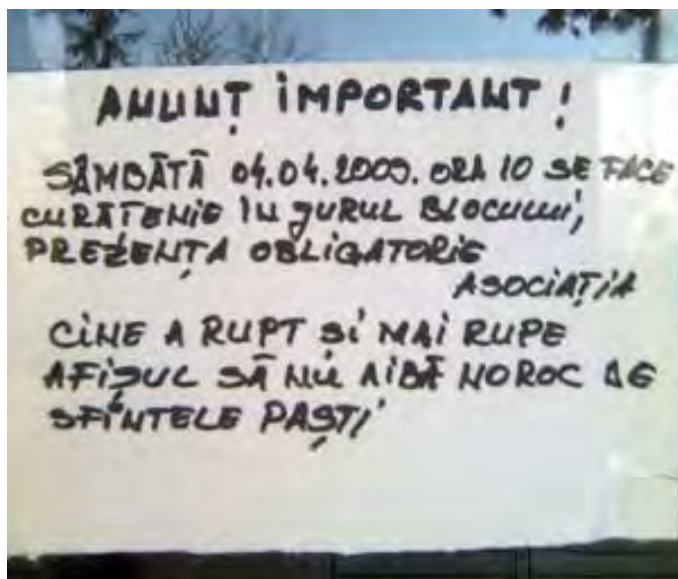 ANUNȚ IMPORTANT !
SÂMBĂTĂ 04.04.2009. ORA 10 SE FACE
CURĂTENIE ÎN JURUL BLOCULUI,
PREZENȚA OBLIGATORIE
ASOCIAȚIA
CINE A RUPT ȘI MAI RUPE
AFIȘUL SĂ NU AIBĂ NOROC DE
SFINTELE PAȘTI